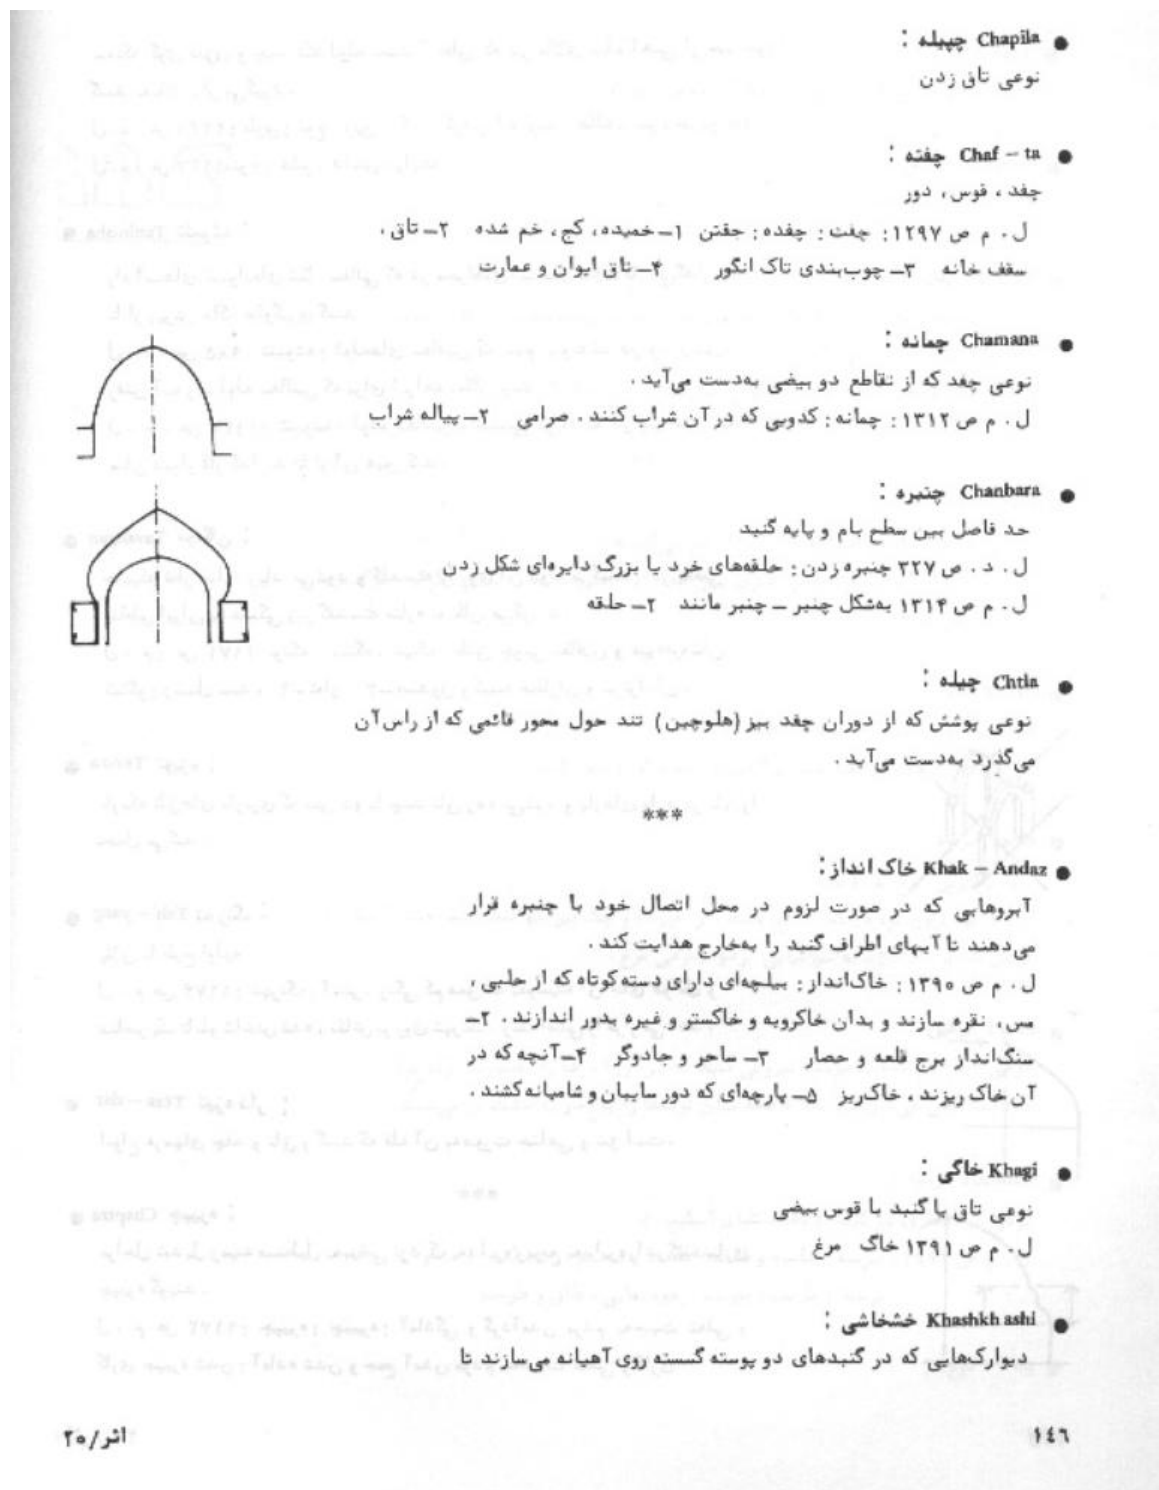 ● Chapila چپیله :
نوعی تاق زدن
● Chaf – ta چفته :
چفد ، قوس ، دور
ل . م ص ۱۲۹۷: چفت : چفده : چفتن ۱– خمیده، کج، خم شده ۲– تاق ،
سقف خانه ۳– چوب‌بندی تاک انگور ۴– تاق ایوان و عمارت
● Chamana چمانه :
نوعی چفد که از نقاطع دو بیضی به‌دست می‌آید .
ل . م ص ۱۳۱۲ : چمانه : کدویی که در آن شراب کنند . صرامی ۲– پیاله شراب
● Chanbara چنبره :
حد فاصل بین سطح بام و پایه گنبد
ل . د . ص ۳۲۷ چنبره زدن : حلقه‌های خرد یا بزرگ دایره‌ای شکل زدن
ل . م ص ۱۳۱۴ به‌شکل چنبر – چنبر مانند ۲– حلقه
● Chtla چیله :
نوعی پوشش که از دوران چفد بیز (هلوچین) تند حول محور قائمی که از راس آن
می‌گذرد به‌دست می‌آید .
***
● Khak – Andaz خاک انداز :
آبروهایی که در صورت لزوم در محل اتصال خود با چنبره قرار
می‌دهند تا آبهای اطراف گنبد را به‌خارج هدایت کند .
ل . م ص ۱۳۹۰ : خاک‌انداز : بیلچه‌ای دارای دسته کوتاه که از حلبی ،
مس، نقره سازند و بدان خاکروبه و خاکستر و غیره بدور اندازند . ۲–
سنگ‌انداز برج قلعه و حصار ۳– ساحر و جادوگر ۴– آنچه که در
آن خاک ریزند ، خاک‌ریز ۵– پارچه‌ای که دور سایبان و شامیانه کشند .
● Khagi خاگی :
نوعی تاق یا گنبد با قوس بیضی
ل . م ص ۱۳۹۱ خاگ مرغ
● Khashkh ashi خشخاشی :
دیوارک‌هایی که در گنبدهای دو پوسته گسسته روی آهیانه می‌سازند تا
۱٤٦
اثر/۲۰